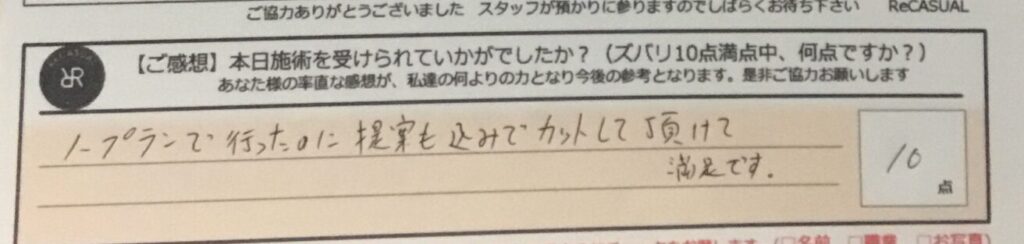 ご協力ありがとうございました　スタッフが預かりに参りますのでしばらくお待ち下さい　ReCASUAL
【ご感想】本日施術を受けられていかがでしたか？（ズバリ10点満点中、何点ですか？）
あなた様の率直な感想が、私達の何よりの力となり今後の参考となります。是非ご協力お願いします
ノープランで行ったのに提案も込みでカットして頂けて
満足です。
10
点
□名前　□職業　□お写真）